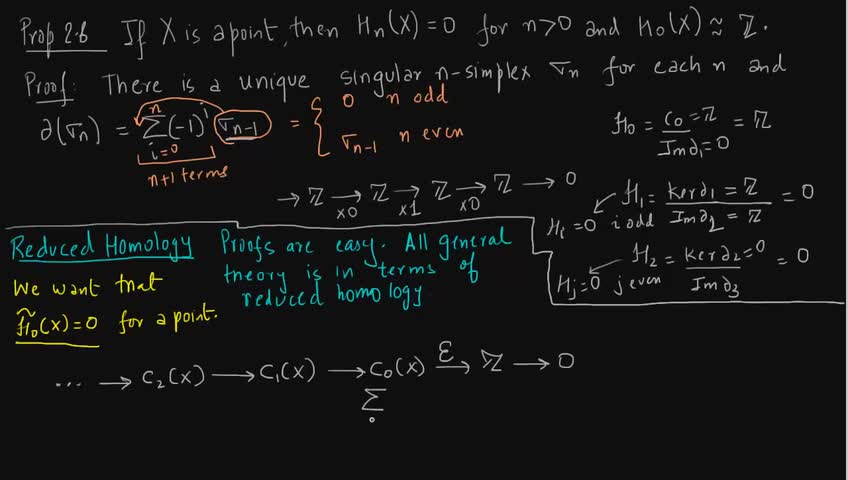 Prop 2.6 If X is a point, then Hn(X) = 0 for n>0 and H0(X) ≈ ℤ.
Proof: There is a unique singular n-simplex σn for each n and
∂(σn) = ∑_{i=0}^{n} (-1)^i σn-1 = { 0 n odd
σn-1 n even
n+1 terms
H0 = C0 = ℤ / Im∂1 = 0 = ℤ
→ ℤ →×0 ℤ →×1 ℤ →×0 ℤ → 0
H1 = ker∂1 = ℤ / Im∂2 = ℤ = 0
Hi = 0 i odd
H2 = ker∂2 = 0 / Im∂3 = 0
Hj = 0 j even
Reduced Homology Proofs are easy. All general
theory is in terms of
reduced homology
We want that
H̃0(X) = 0 for a point.
... → C2(X) → C1(X) → C0(X) →ε ℤ → 0
∑